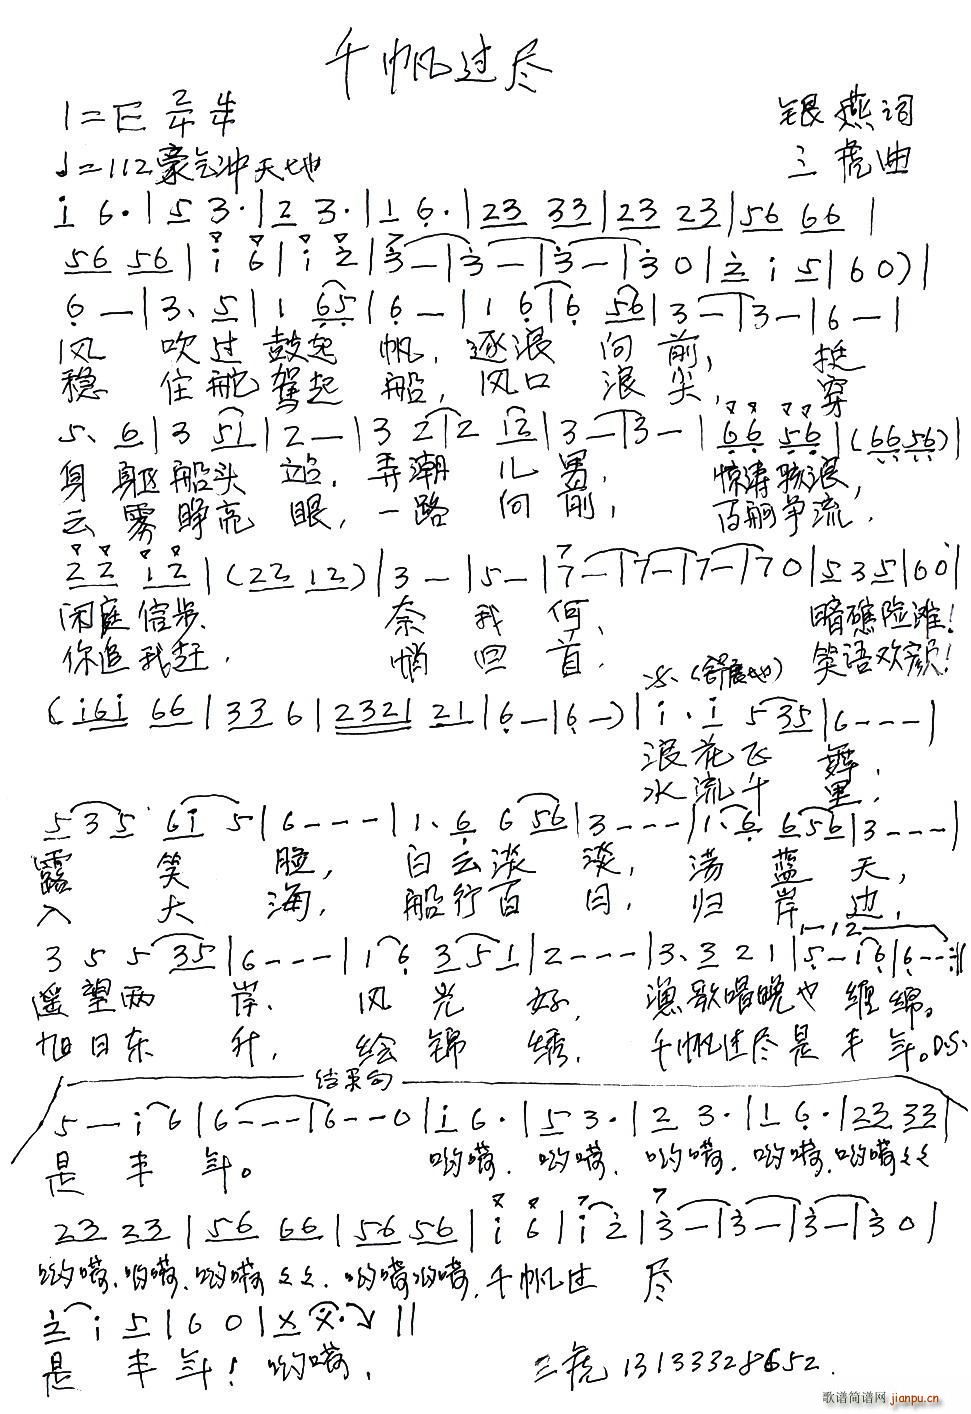 千帆过尽
1=E 2/4 4/4
银燕词
♩=112 豪气冲天地
三虎曲
i 6·|5 3·|2 3·|1 6·|23 33|23 23|56 66|
56 56|i 6|i 2|3—|3—|3—|3 0|2 i 5|6 0)|
6 —|3、5|1 65|6—|1 6|6 56|3—|3—|6—|
风 吹过鼓起 帆,逐浪 向 前, 挺
稳 住舵驾起 船,风口 浪 尖, 穿
5、6|3 51|2—|3 2|2 12|3—|3—|66 56|(66 56)|
身躯船头 立,弄潮 儿 男, 惊涛骇浪,
云雾睁亮 眼,一路 向 前, 百舸争流,
22 12|(22 12)|3—|5—|7—|7—|7—|7 0|5 3 5|6 0|
闲庭信步, 奈 我 何, 暗礁险滩!
你追我赶, 悄 回 首, 笑语欢颜!
(舒展地)
(i6i 66|33 6|2321 21|6—|6—)|i·i 5 35|6---|
浪花飞 舞,
水流千 里,
5 3 5 6i 5|6---|1、6 6 56|3---|1、6 6 56|3---|
露 笑 脸, 白云淡 淡, 荡 蓝 天,
入 大 海, 船行百 日, 归 岸 边,
1 2
3 5 5 35|6---|1 6 3 5 1|2---|3、3 2 1|5—16|6--:||
遥望两 岸, 风 光 好, 渔歌唱晚也 缠绵。
旭日东 升, 绘 锦 绣, 千帆过尽是 丰 年。D.S.
结束句
5 — i 6|6---|6--0|i 6·|5 3·|2 3·|1 6·|23 33|
是 丰 年。 哟嗬,哟嗬,哟嗬,哟嗬,哟嗬
23 23|56 66|56 56|i 6|i 2|3—|3—|3—|3 0|
哟嗬,哟嗬,哟嗬 哟嗬哟嗬,千帆过 尽
2 i 5|6 0|X X·||
是 丰 年! 哟嗬,
三虎 13133328652.
歌谱简谱网 jianpu.cn